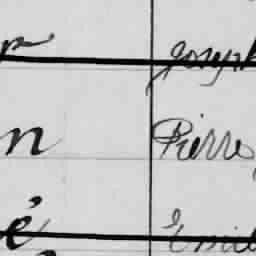 Joseph
n Pierre
é Emile